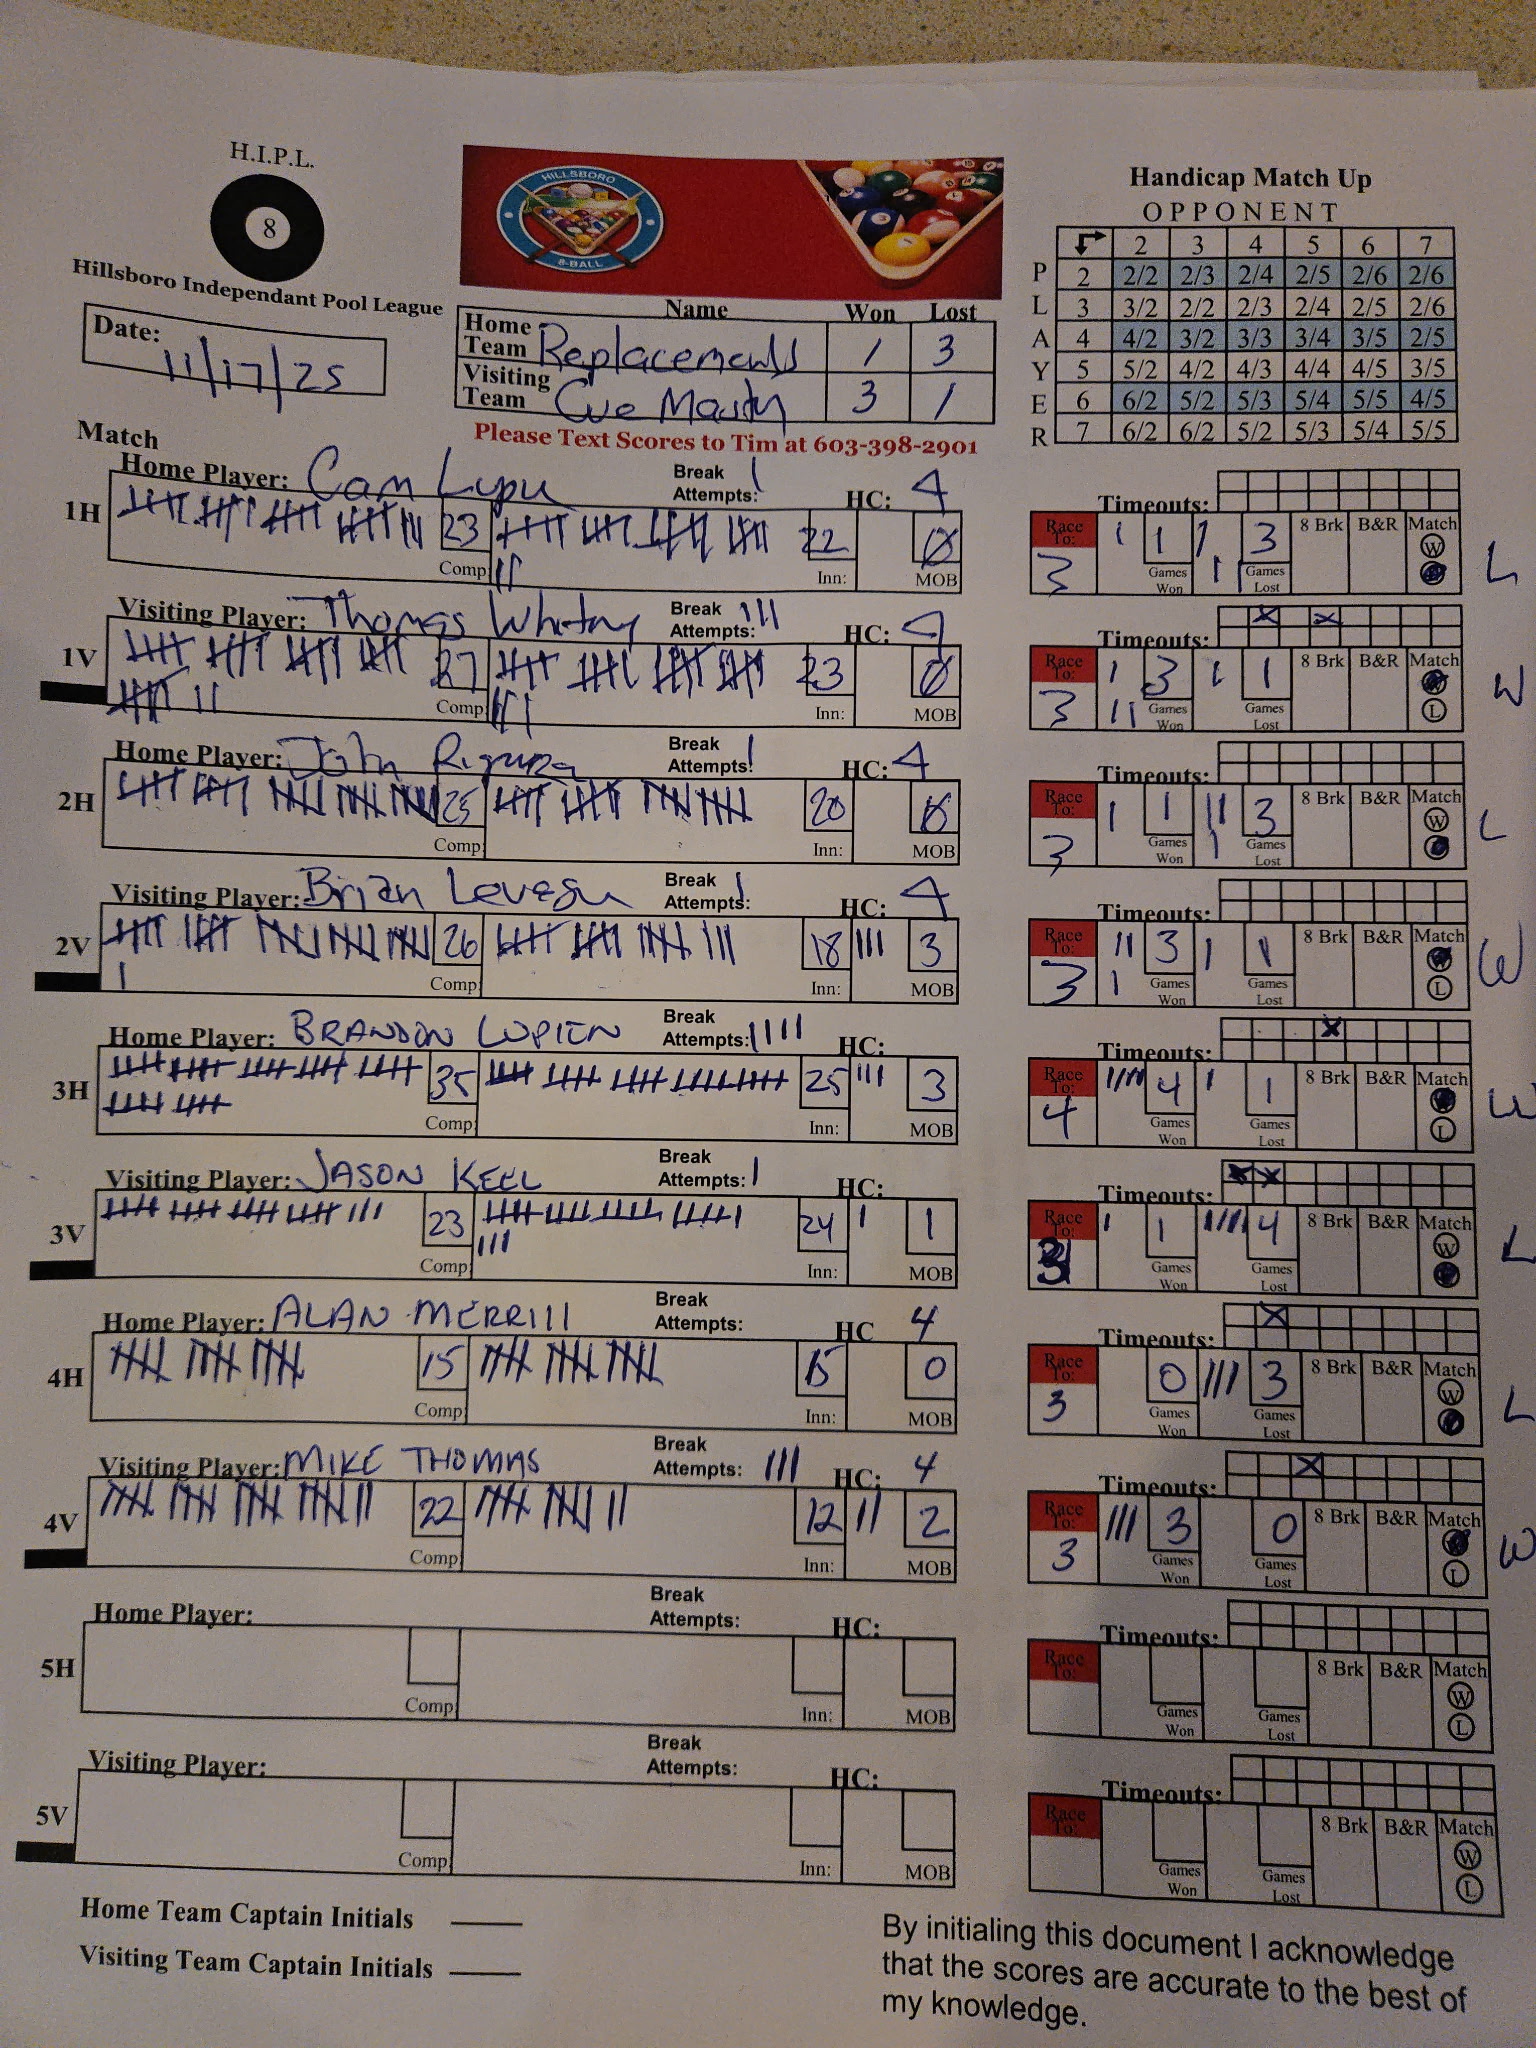 H.I.P.L.
8
Hillsboro Independant Pool League
HILLSBORO
8-BALL
Handicap Match Up
OPPONENT
2 3 4 5 6 7
P 2 2/2 2/3 2/4 2/5 2/6 2/6
L 3 3/2 2/2 2/3 2/4 2/5 2/6
A 4 4/2 3/2 3/3 3/4 3/5 2/5
Y 5 5/2 4/2 4/3 4/4 4/5 3/5
E 6 6/2 5/2 5/3 5/4 5/5 4/5
R 7 6/2 6/2 5/2 5/3 5/4 5/5
Date: 11/17/25
Name Won Lost
Home Team Replacements 1 3
Visiting Team Cue Mausty 3 1
Please Text Scores to Tim at 603-398-2901
Match
Home Player: Cam Lupu Break Attempts: HC: 4 Timeouts:
1H 23 Comp: 22 Inn: 0 MOB Race To: 3 1 Games Won 3 Games Lost 8 Brk B&R Match W L L
Visiting Player: Thomas Break Attempts: HC: 4 Timeouts:
1V 27 Comp: 23 Inn: 0 MOB Race To: 3 3 Games Won 1 Games Lost 8 Brk B&R Match W L W
Home Player: John Break Attempts: HC: 4 Timeouts:
2H 25 Comp: 20 Inn: 0 MOB Race To: 3 1 Games Won 3 Games Lost 8 Brk B&R Match W L L
Visiting Player: Brian Break Attempts: HC: 4 Timeouts:
2V 26 Comp: 18 Inn: 3 MOB Race To: 3 3 Games Won 1 Games Lost 8 Brk B&R Match W L W
Home Player: BRANDON LUPIEN Break Attempts: HC: Timeouts:
3H 35 Comp: 25 Inn: 3 MOB Race To: 4 4 Games Won 1 Games Lost 8 Brk B&R Match W L W
Visiting Player: JASON KEEL Break Attempts: HC: Timeouts:
3V 23 Comp: 24 Inn: 1 MOB Race To: 3 1 Games Won 4 Games Lost 8 Brk B&R Match W L L
Home Player: ALAN MERRIll Break Attempts: HC 4 Timeouts:
4H 15 Comp: 15 Inn: 0 MOB Race To: 3 0 Games Won 3 Games Lost 8 Brk B&R Match W L L
Visiting Player: MIKE THOMAS Break Attempts: HC: 4 Timeouts:
4V 22 Comp: 12 Inn: 2 MOB Race To: 3 3 Games Won 0 Games Lost 8 Brk B&R Match W L W
Home Player: Break Attempts: HC: Timeouts:
5H Comp: Inn: MOB Race To: Games Won Games Lost 8 Brk B&R Match W L
Visiting Player: Break Attempts: HC: Timeouts:
5V Comp: Inn: MOB Race To: Games Won Games Lost 8 Brk B&R Match W L
Home Team Captain Initials
Visiting Team Captain Initials
By initialing this document I acknowledge
that the scores are accurate to the best of
my knowledge.